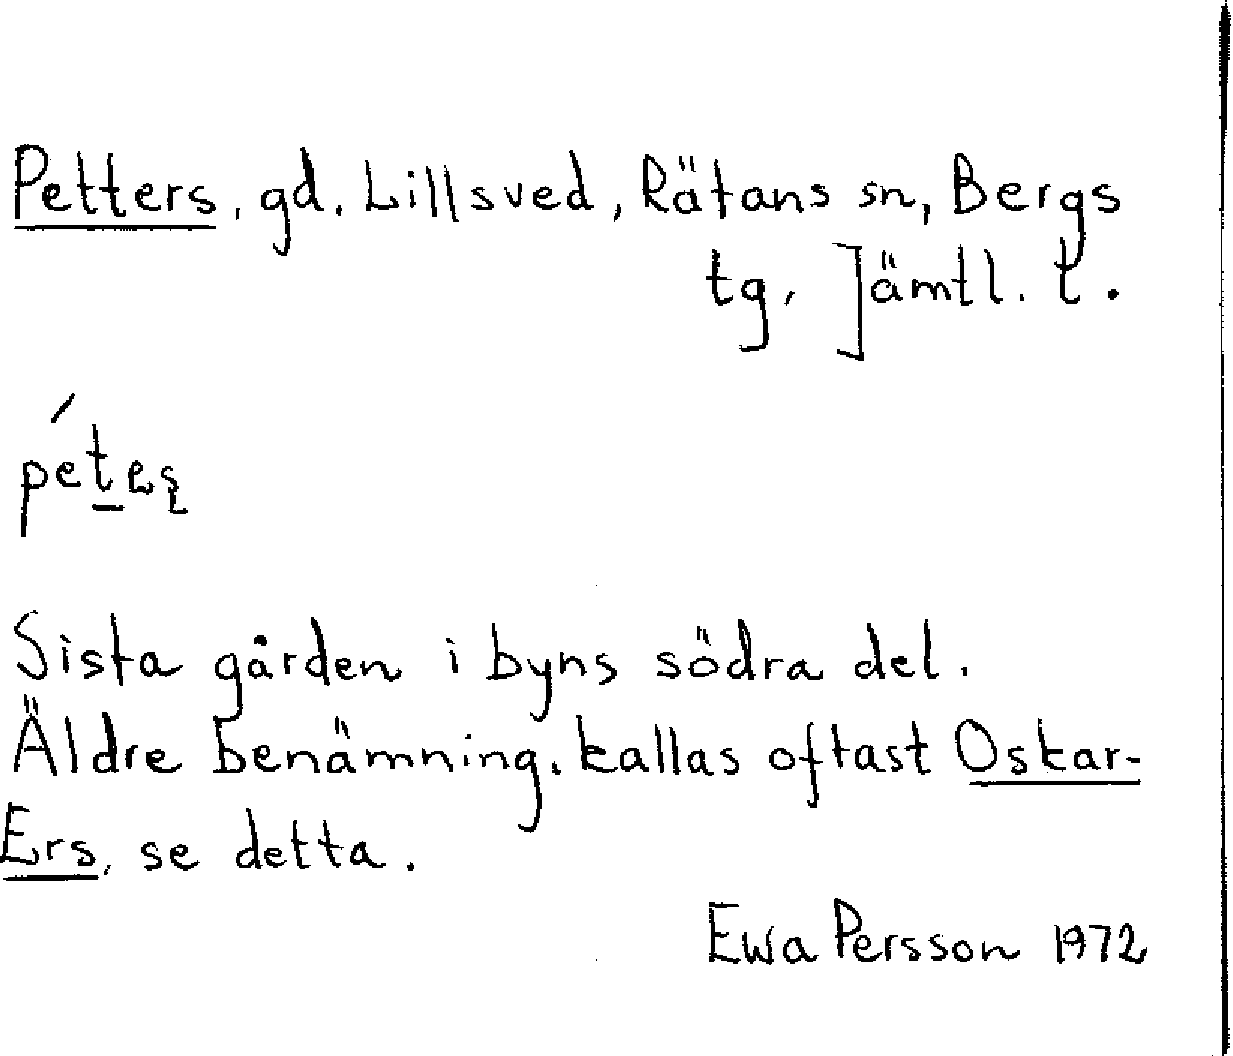 Petters, gd. Lillsved, Rätans sn, Bergs
tg, Jämtl. l.
pét̲eʂ
Sista gården i byns södra del.
Äldre benämning, kallas oftast Oskar-
Ers, se detta.
Ewa Persson 1972